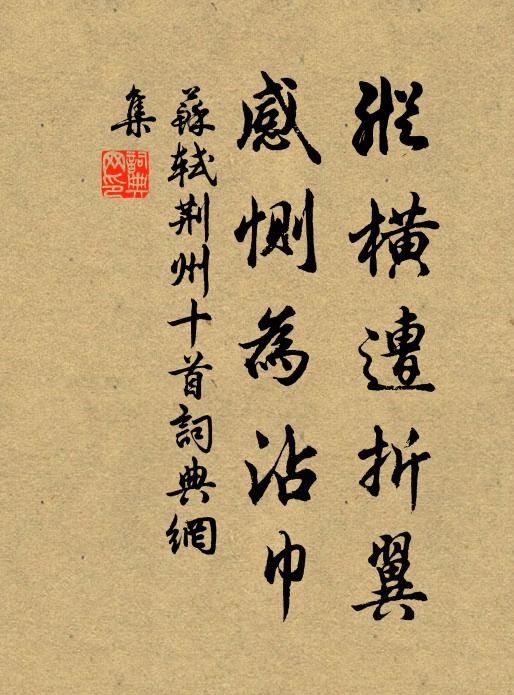 縱橫遭折翼
感惻為沾巾
蘇軾荆州十首詞典網
集
詞典網印